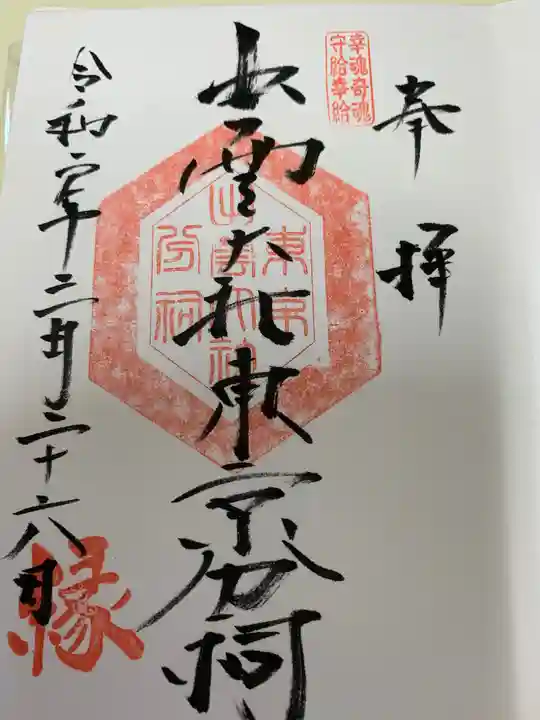 奉拝
幸魂奇魂
守給幸給
出雲大社東京分祠
東京
出雲大神
分祠
令和二年三月二十六日
縁